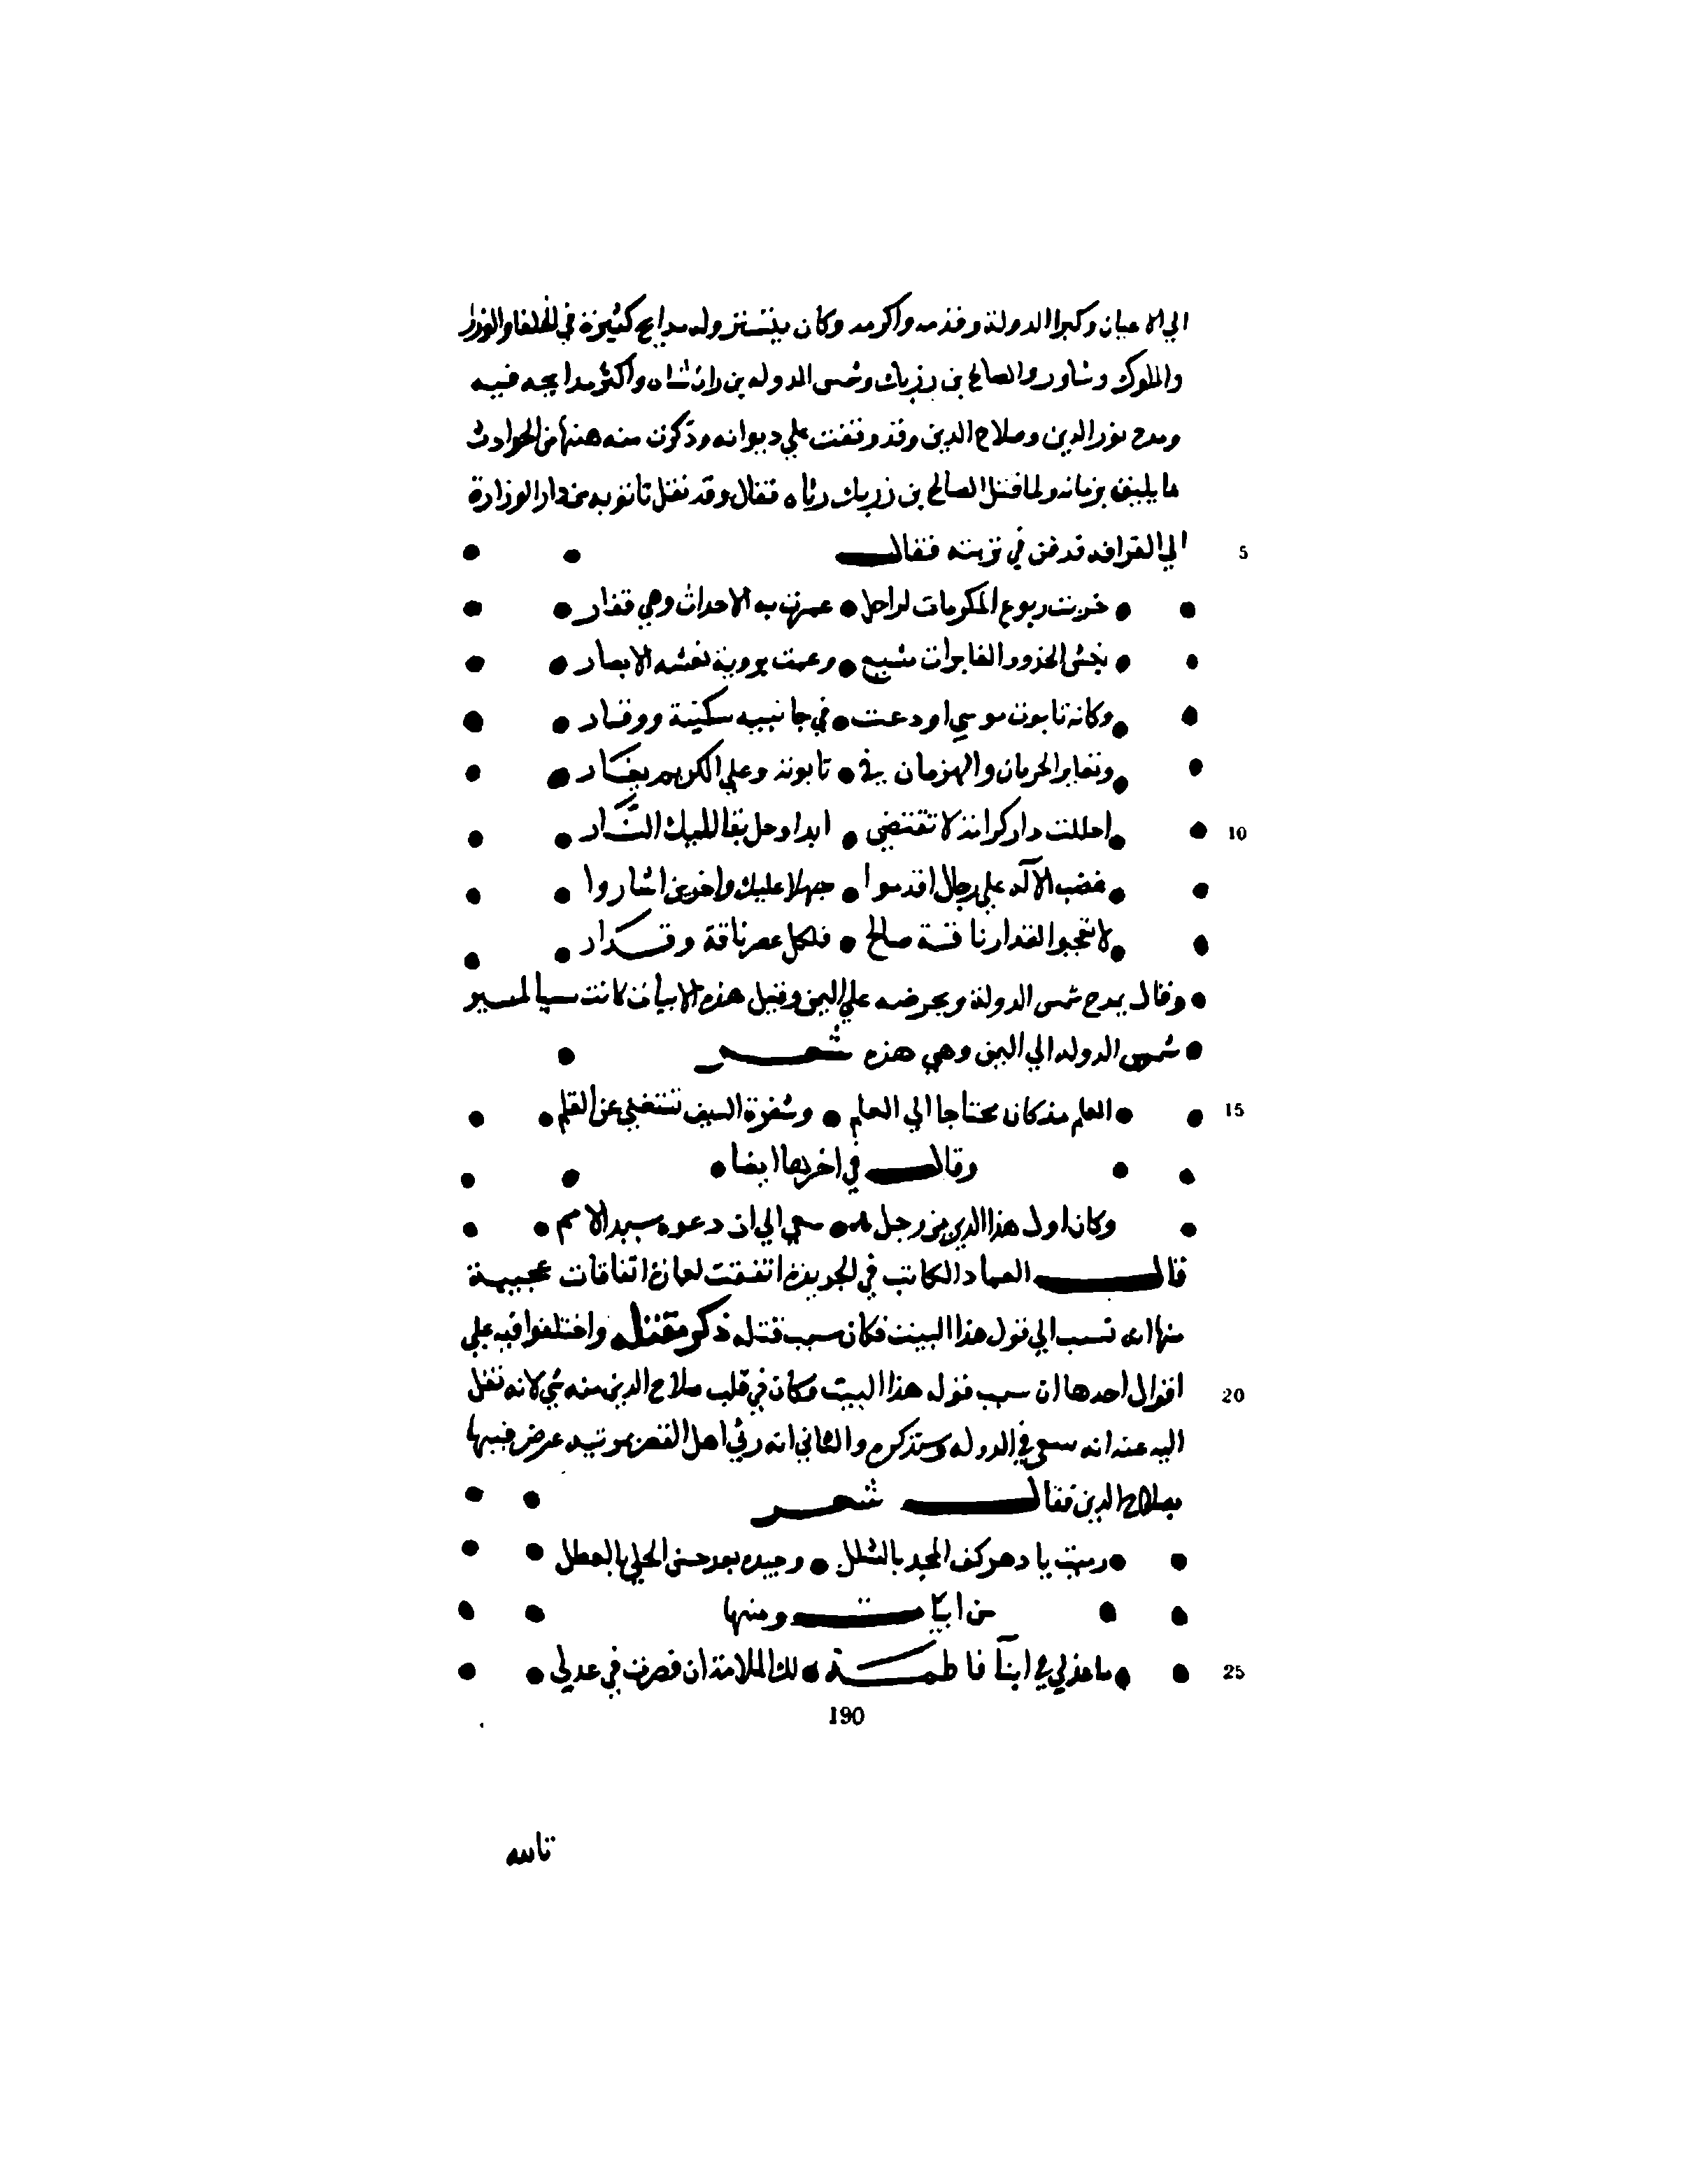 الي الاعيان وكبرا الدولة وقدمه واكرمه وكان يتستر وله مدايح كثيرة في الخلفا والوزرا
والملوك وشاور والصالح بن رزيك وشمس الدوله بن ران شاه واكثر مدايحه فيه
ومدح نور الدين وصلاح الدين وقد وقفت علي ديوانه وذكرت منه هنها من الحوادث
ما يليق بزمانه ولما قتل الصالح بن رزيك رثاه فقال وقد نقل تابوته من دار الوزارة
الي القرافه فدفن في تربته فقال
5
خربت ربوع المكرمات لراحل • عمرت به الاحداث وهي قفار
نجش الخدور الغابرات مشيع • وعمت بروية نعشه الابصار
وكانه تابوت موسي اودعت • في جانبيه سكينة ووقار
وتغاير الحرمان والهرمان في • تابوته وعلي الكريم يغار
احللت دار كرامة لا تنقضي • ابدا وحل بقاتليك التار
10
غضب الآله علي رجال اقدموا • جهلا عليك واخرين اشاروا
لا تعجبوا لقدار ناقة صالح • فلكل عصر ناقة وقدار
وقال يمدح شمس الدولة ويحرضه علي اليمن وقيل هذه الابيات كانت سببا لمسير
شمس الدوله الي اليمن وهي هذه شعر
العلم مذ كان محتاجا الي العلم • وشفرة السيف تستغني عن القلم
15
وقال في اخرها ايضا
وكان اول هذا الدين من رجل • سعي الي ان دعوه سيد الامم
قال العماد الكاتب في الخريدة اتفقت لعمارة اتفاقات عجيبة
منها انه نسب الي قول هذا البيت فكان سبب قتله ذكر مقتله واختلفوا فيه علي
اقوال احدها ان سبب قوله هذا البيت وكان في قلب صلاح الدين منه شي لانه نقل
20
اليه عنه انه سعي في الدوله وستذكره والثاني انه رثي اهل القصر بمرثيه عرض فيها
بصلاح الدين فقال شعر
رميت يا دهر كف المجد بالشلل • وجيده بعد حسن الحلي بالعطل
من ابيات ومنها
ما عذلي في ابنآ فاطمة • لك الملامة ان قصرت في عدلي
25
190
تالله